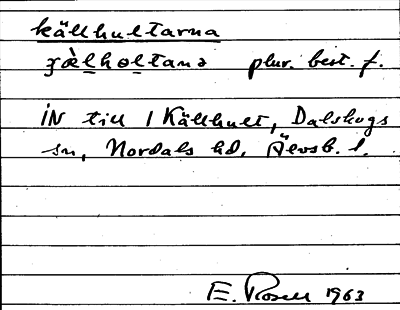 källhultarna
ʒὰlholtana plur. best. f.
iN till 1 Källhult, Dalskogs
sn, Nordals hd, Älvsb. l.
E. Rosell 1963